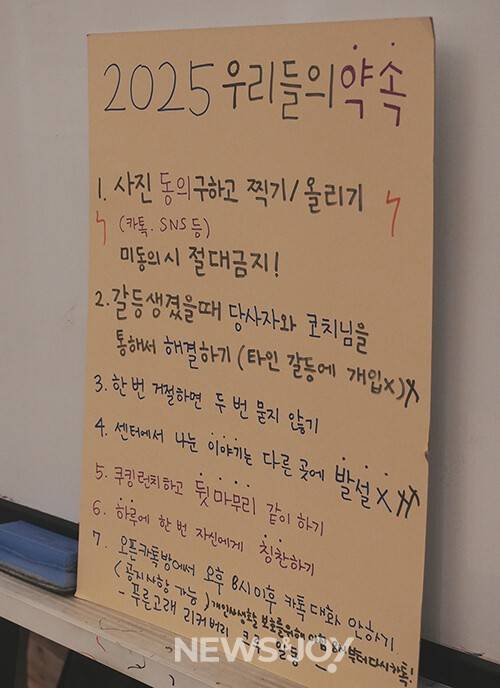 2025 우리들의 약속
1. 사진 동의구하고 찍기/올리기
(카톡. SNS 등)
미동의시 절대금지!
2. 갈등생겼을때 당사자와 코치님을
통해서 해결하기 (타인 갈등에 개입X)X
3. 한 번 거절하면 두 번 묻지 않기
4. 센터에서 나눈 이야기는 다른 곳에 발설 XXX
5. 쿠킹런치하고 뒷 마무리 같이 하기
6. 하루에 한 번 자신에게 칭찬하기
7. 오픈카톡방에서 오후 8시 이후 카톡 대화 안하기
(공지사항 가능) 개인사생활 보호를 위해 부터 다시 카톡!
- 푸른고래 리커버리
NEWSNJOY